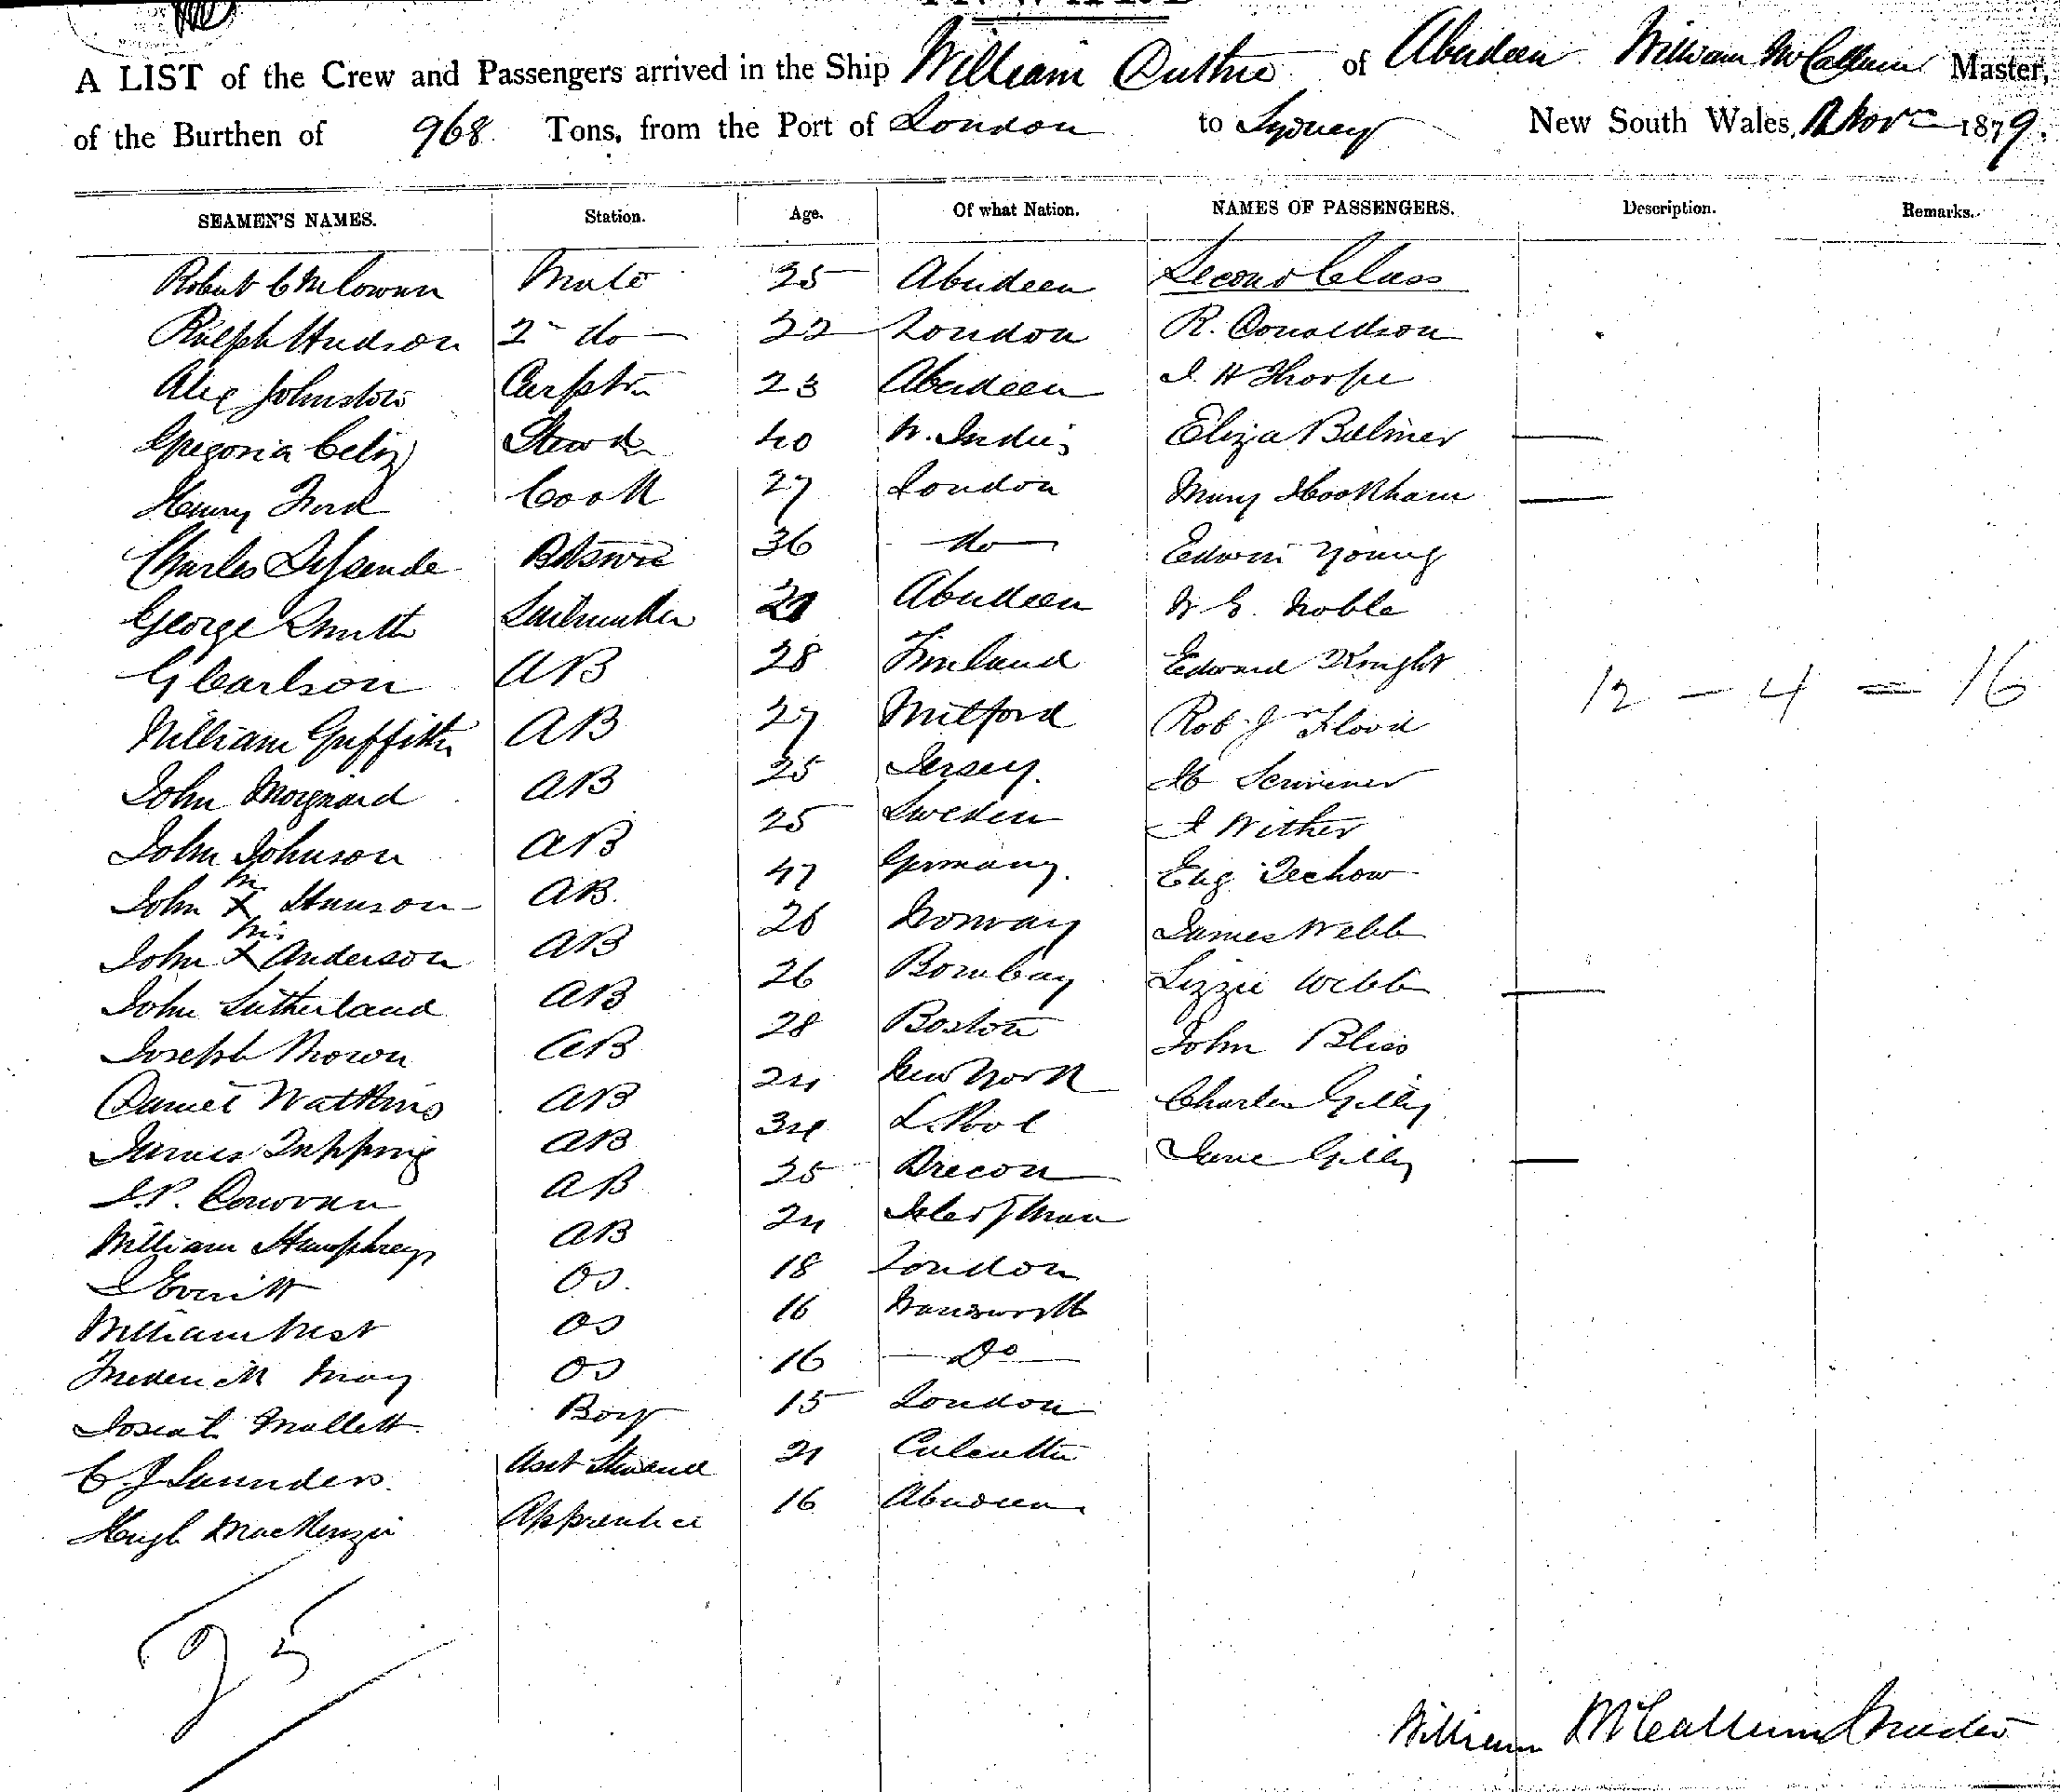 INWARD
A LIST of the Crew and Passengers arrived in the Ship William Duthie of Aberdeen William McCallum Master,
of the Burthen of 968 Tons, from the Port of London to Sydney New South Wales, Novr 1879.
SEAMEN'S NAMES. Station. Age. Of what Nation. NAMES OF PASSENGERS. Description. Remarks.
Robert C McCowan Mate 25 Aberdeen Second Class
Ralph Hudson 2nd do 22 London R. Donaldson
Alex Johnston Carptr 23 Aberdeen J. H Thorpe
Gregoria Celiz Stewd 40 W. Indies Eliza Balmer
Henry Ford Cook 27 London Mary Hookham
Charles 36 do Edwin Young
George Smith Sailmaker Aberdeen W. G. Noble
G Carlson AB 28 Finland Edward Knight
William Griffiths AB 27 Milford Rob Jnr Flood
12 - 4 = 16
John AB 25 Jersey. H Scrivener
John Johnson AB 25 Sweden J Wither
John X Hanson AB. 47 Germany. Eug. Techow
John his X Anderson AB 26 Norway James Webb
John Sutherland AB 26 Bombay Lizzie Webb
Joseph Brown AB 28 Boston John Bliss
Daniel Watkins AB 24 New York Charles Gilby
James Tapping AB 34 L.Pool Jane Gilby
J.P. Donovan AB 25 Brecon
William Humphreys AB 24 Isle of Man
J Everitt OS. 18 London
William West OS 16 Wansworth
Frederick May OS 16 Do
Josiah Mallett Boy 15 London
C J Saunders. Asst Steward 21 Calcutta
Hugh MacKenzie Apprentice 16 Aberdeen
25
William McCallum Master